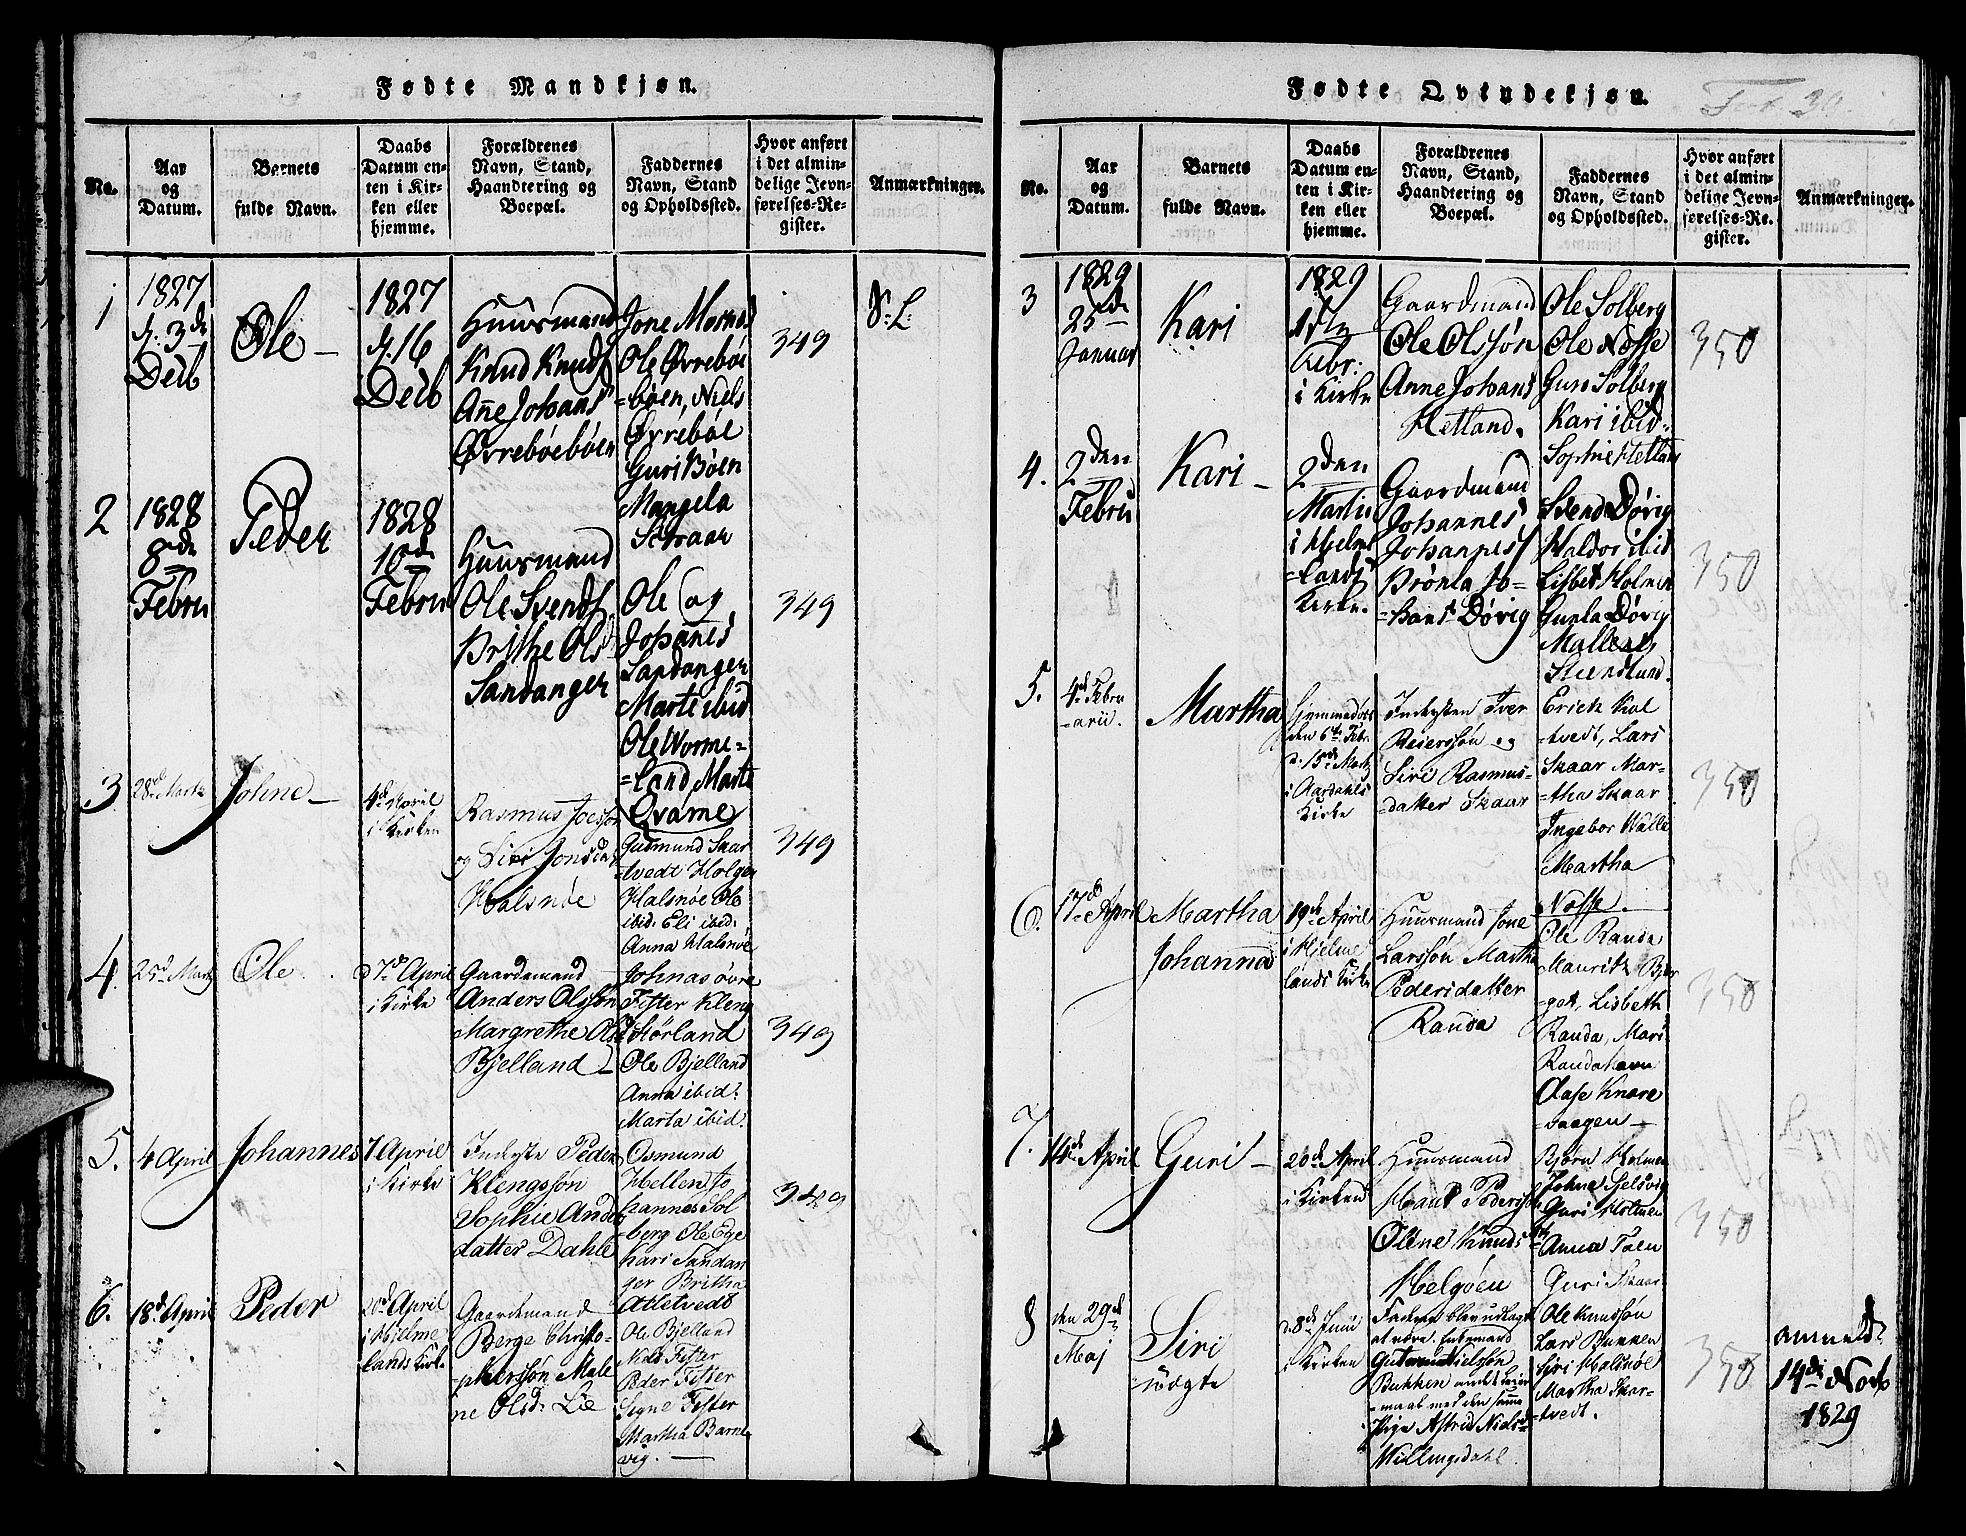 Fødte Mandkjøn.
No.
Aar
og
Datum.
Barnets
fulde Navn.
Daabs
Datum en-
ten i Kir-
ken eller
hjemme.
Forældrenes
Navn, Stand,
Haandtering og
Boepæl.
Faddernes
Navn, Stand
og Opholdssted.
Hvor anført
i det almin-
delige Jevn-
førelses-Re-
gister.
Anmærkninger.
1
1827
d. 3de
Decb
Ole
1827
d. 16
Decb
Huusmand
Knud Knuds
Anne Johans
Øvrebøebøen
Jone Mosnas
Ole Øvrebøe
=bøen, Niels
Øvrebøe
Guri Bøen
Mangela
Schaar
349
S. L.
2
1828
8de
Febru
Peder
1828
10de
Febru
Huusmand
Ole Svends
Brithe Ols
Sandanger
Ole og
Johanes
Sandanger
Marte ibid
Ole Worme=
=land Marte
Qvame
349
3
28de Martz
Johne
4de April
i Kirken
Rasmus Joesøn
og Siri Jonsdat
Halsnøe
Gudmund Skar
=tvedt Holger
Halsnøe Ole
ibid. Eli ibid.
Anna Halsnøe
349
4.
25d Martz
Ole
d 7de April
i Kirke
Gaardemand
Anders Olssøn
Margrethe Olsd
Bjelland
Johnas øvre
Fister Kleng
Størland
Ole Bjelland
Anna ibid.
Marta ibid.
349
5.
4 April
Johannes
7 April
i Kirke
Inderste Peder
Klengssøn
Sophie Anders
datter Dahle
Osmund
Hellen Jo
hannes Sol
berg Ole Ege
Kari Sandan
ger Britha
Atletvedt
349
6.
18d April
Peder
20d April
i Hjelme
lands Kirke
Gaardemand
Berge Christo=
=phersøn Male
ne Olsd. Lie
Ole Bjelland
Nils Fister
Peder Fister
Signe Fister
Martha Barne
vig.
Fødte Qvindekjøn.
Fol. 30.
No.
Aar
og
Datum.
Barnets
fulde Navn.
Daabs
Datum en-
ten i Kir-
ken eller
hjemme.
Forældrenes
Navn, Stand,
Haandtering og
Boepæl.
Faddernes
Navn, Stand
og Opholdssted.
Hvor anført
i det almin-
delige Jevn-
førelses-Re-
gister.
Anmærkninger.
3
1829
25de
Januar
Kari
1829
Febr.
i Kirke
Gaardmand
Ole Olssøn
Anne Johans
Hetland.
Ole Solberg
Ole Nøsse
Guro Solberg
Kari ibid.
Sophie Hetland
350
4.
2den
Febru
Kari
2den
Martii
i Hjelme
=lands
Kirke.
Gaardmand
Johannes
Johannes
Brønla Jo=
=hans Døvig
Svend Døvig
Waldor ibid
Lisbet Holmen
Gunla Døvig
Mallene
Steenslund.
350
5.
4de Febru
=arii.
Martha
hjemmedøbt
den 6te Febr.
d. 15de Martz
i Aardahls
Kirke
Inderssten Iver
Reierssøn og
Siri Rasmus=
=datter Skaar
Erich Kal
=tvedt, Lars
Skaar Mar=
=tha Skaar
Ingebor Walle
Martha
Nøsse.
350
6.
17de April
Martha
Johanna
19de April
i Hjelme
lands Kirke
Huusmand Jone
Larssøn Martha
Pedersdatter
Randa
Ole Randa
Mauritz Bjer
=get, Lisbeth
Randa, Mari
Randahavn
Aase Knare
=vaagen
350
7.
14de April
Guri
20de April
i Kirken
Huusmand
Hans Pederssøn
Olene Knuds
Helgøen
Bjørn Holmen
Johne Selsvig
Guri Holmen
Anna Toen
Guri Skaar
350
8
den 29de
Maj
Siri
uægte
d. 8de Junii
i Kirken
Faderen blev udlagt
at være Enkemand
Nielssøn
Bukken andet Leier
=maal med den samme
Pige Astrid Niels
Willingsdahl.
Ole Knudssøn
Lars Bukken
Siri Halsnøe
Martha Skar=
=tvedt.
350
anmeldt
14de Novb
1829